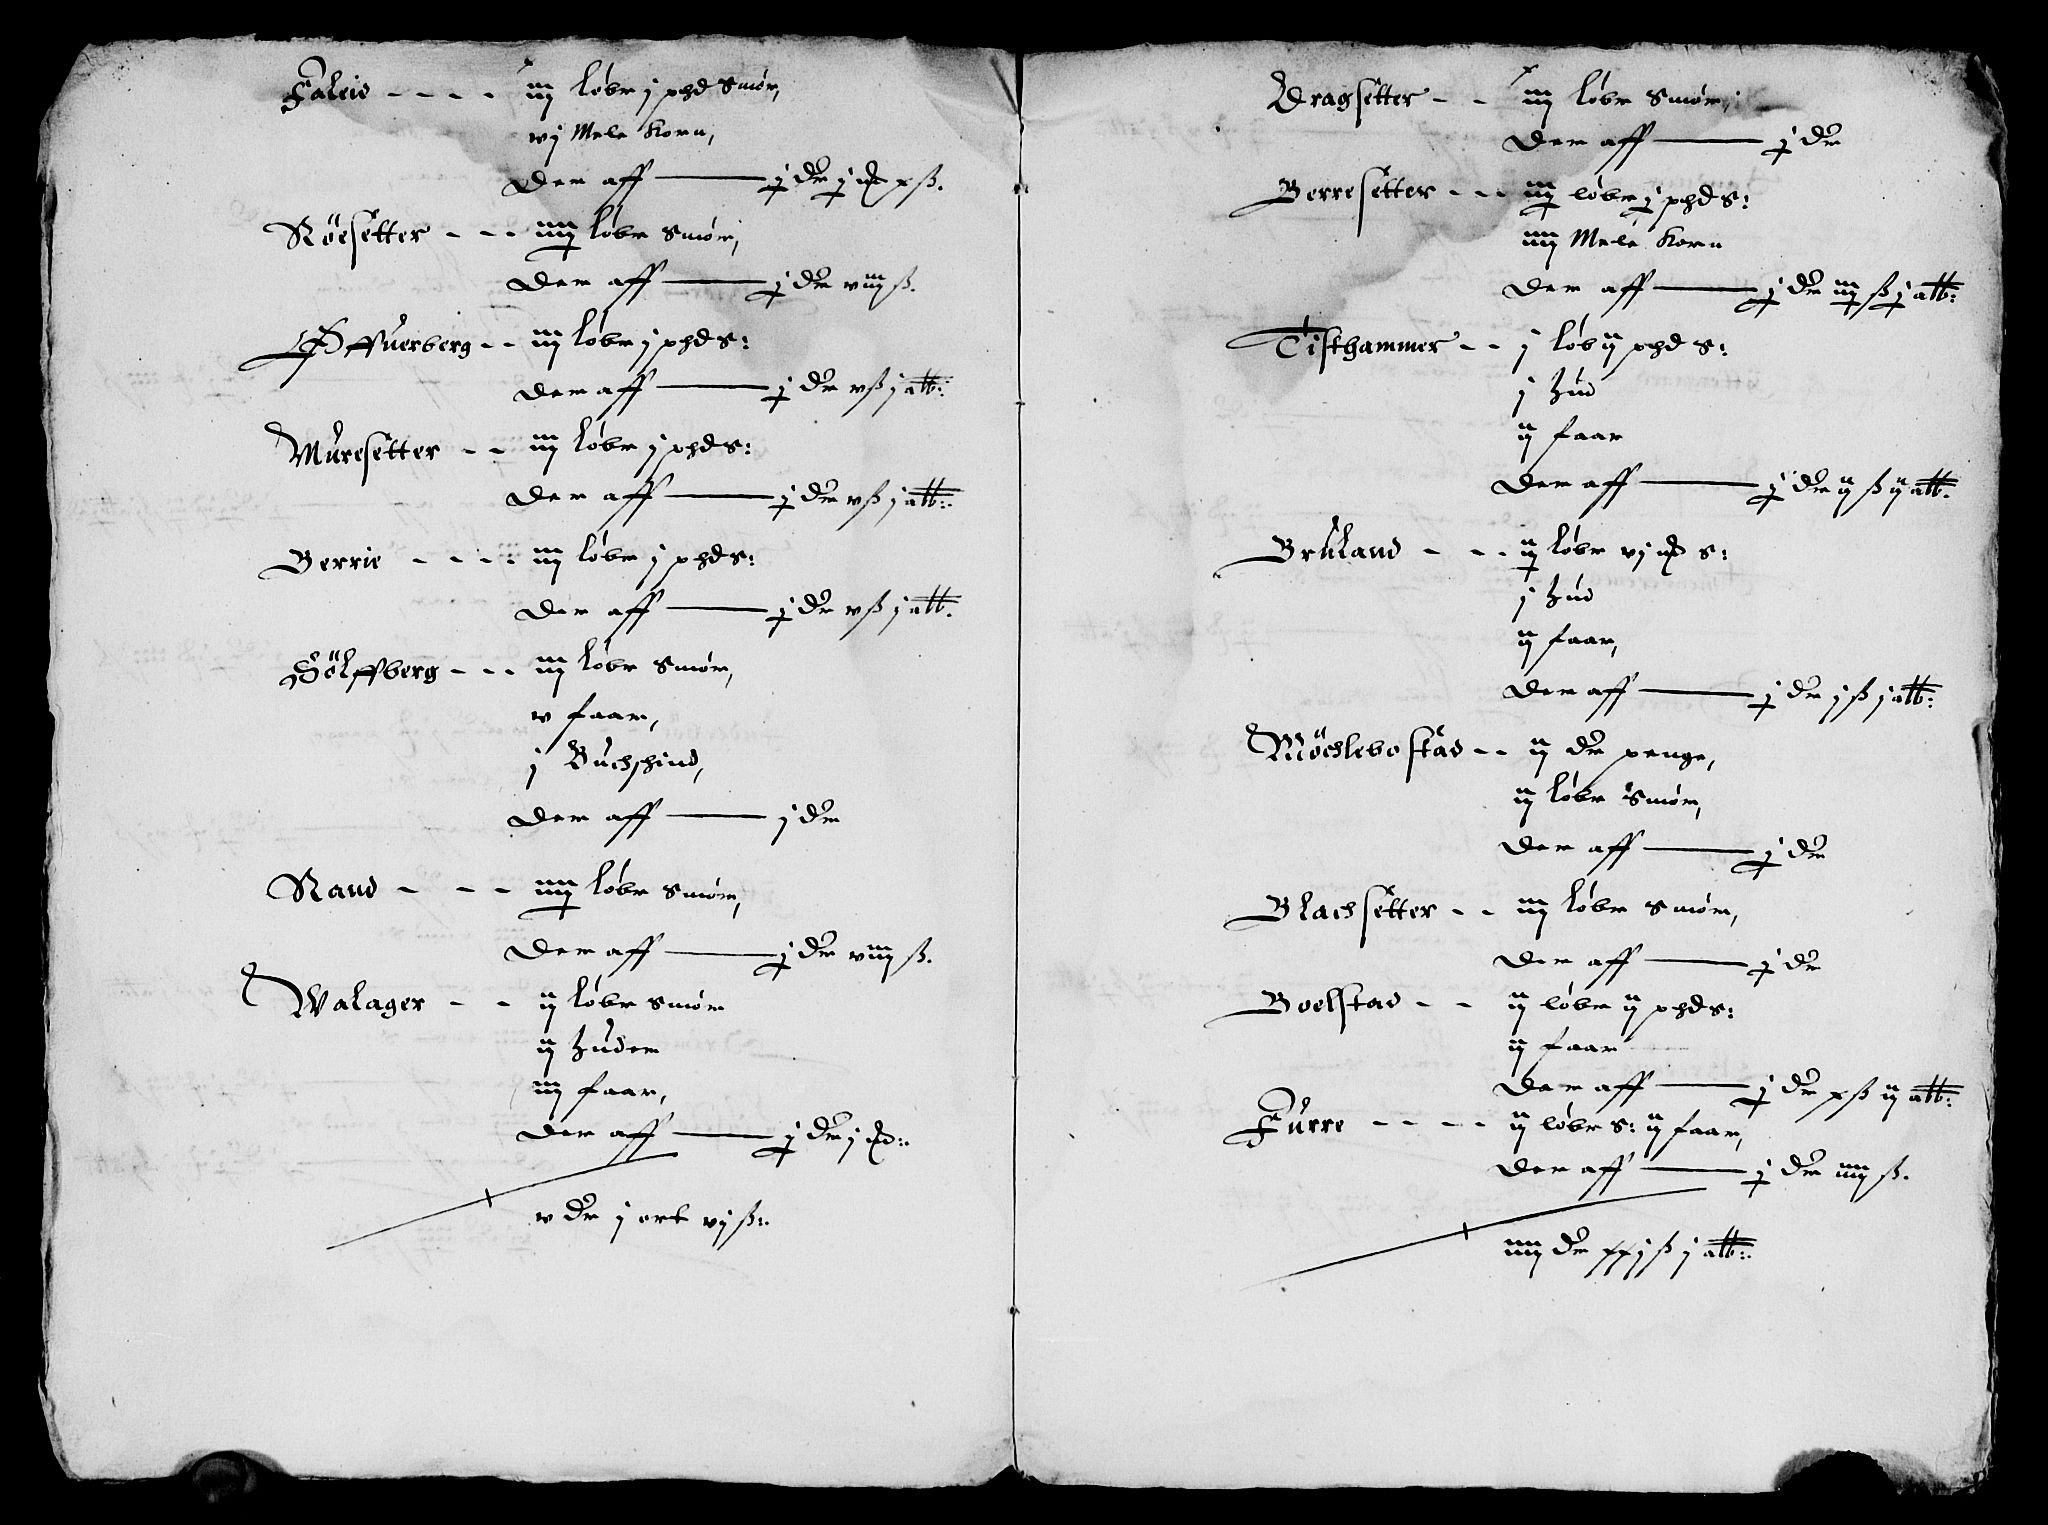 Faleid - - - - iij løbr j phd smør,
vj Mele Korn,
Der aff j dr j mk x ß.
Röesetter - - - iiij løbr smør,
Der aff j dr viij ß.
Øffuerberg - - iij løbr j phd s:
Der aff j dr v ß j alb:
Muresetter - - iij løbr j phd s:
Der aff j dr v ß j alb:
Berrie - - - - iij løbr j phd s:
Der aff j dr v ß j alb.
Hölffberg - - - iij løbr smør,
v faar,
j Buchschind,
Der aff j dr
Rand - - - iiij løbr smør,
Der aff j dr viij ß.
Walager - - ij løbr smør
ij huder
iiij faar,
Der aff j dr j mk:
v dr j ort vj ß:
Dragsetter - - iij løbr smør,
Der aff j dr
Berresetter - - - iij løbr j phd s:
iiij Mele Korn
Der aff j dr iij ß j alb:
Tisthammer - - j løb ij phd s:
j hud
ij faar
Der aff j dr ij ß ij alb.
Bruland - - - ij løbr vj mk s:
j hud
ij faar,
Der aff j dr j ß j alb:
Möchlebostad - - ij dr penge,
ij løbr smør,
Der aff j dr
Blachsetter - - iij løbr smør,
Der aff j dr
Boelstad - - ij løbr ij phd s:
ij faar
Der aff j dr x ß ij alb:
Furre - - - - ij løbr s: ij faar,
Der aff j dr iiij ß.
iiij dr xxj ß j alb: